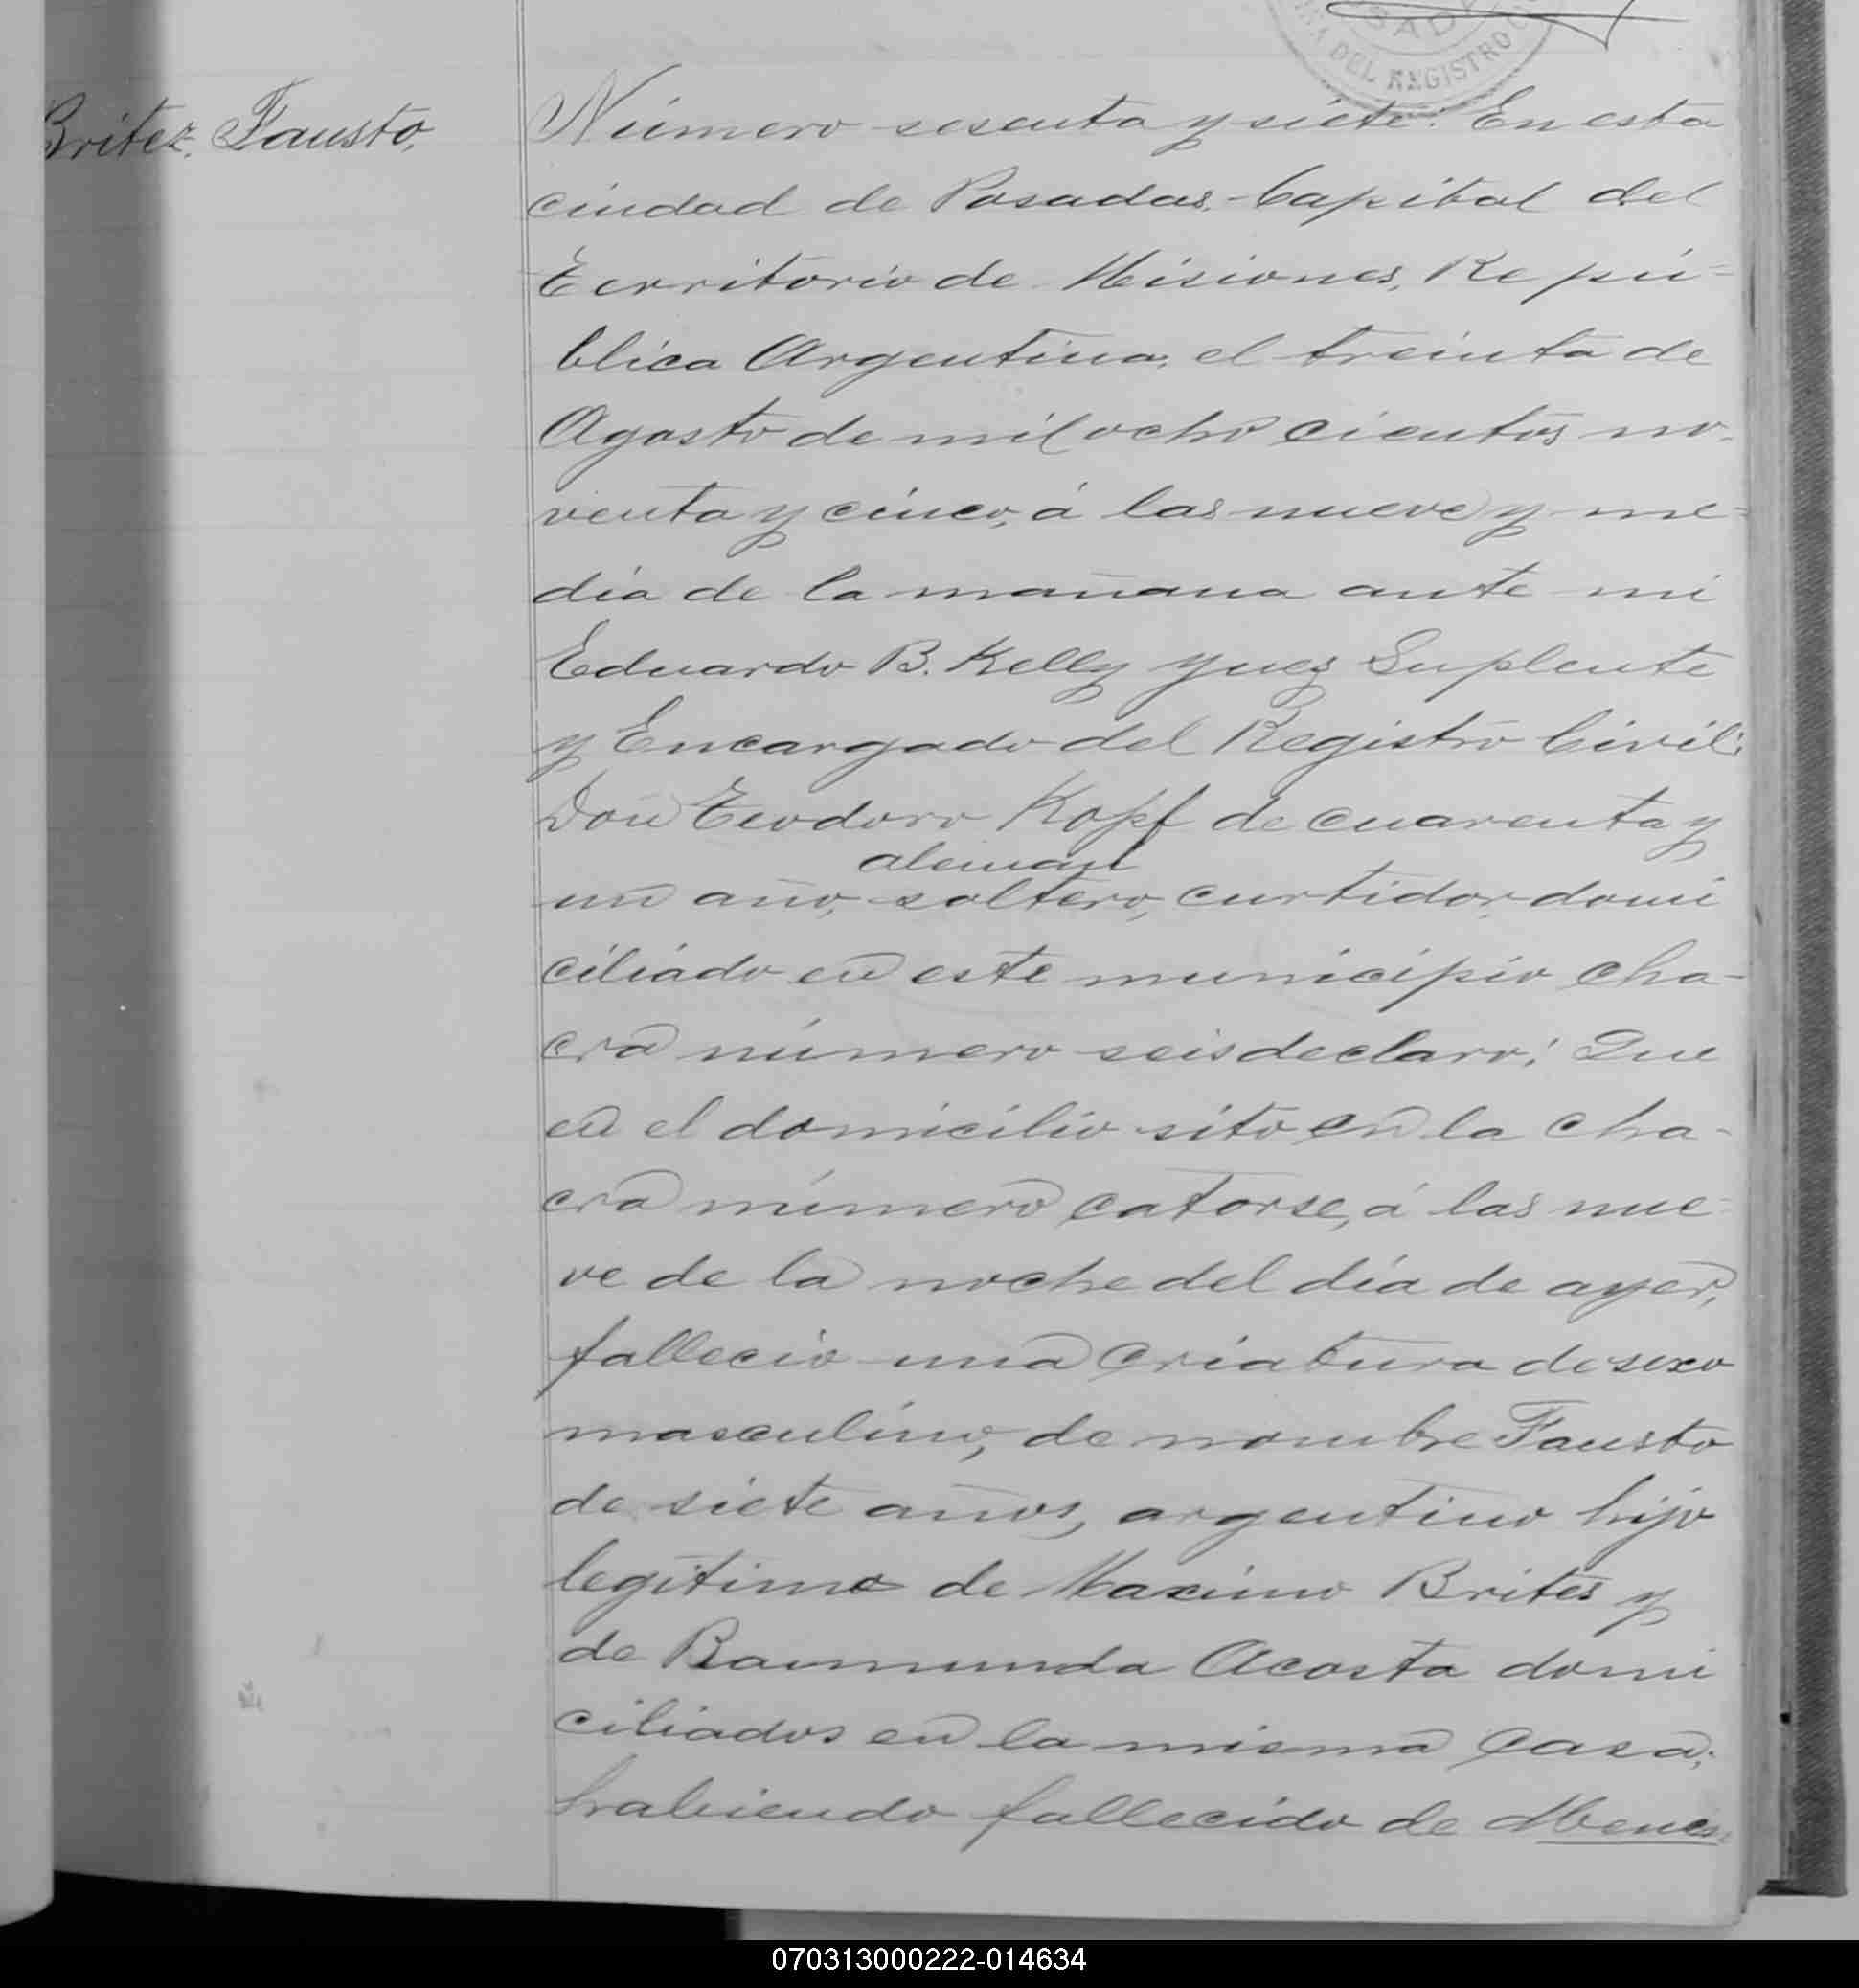 SADAS
INA DEL REGISTRO C
Britez, Fausto,
Número sesenta y siete: En esta
ciudad de Posadas, Capital del
Territorio de Misiones, Repú-
blica Argentina, el treinta de
Agosto de mil ocho cientos no-
venta y cinco, á las nueve y me-
dia de la mañana ante mi
Eduardo B. Kelly Juez Suplente
y Encargado del Registro Civil:
Don Teodoro Kopf de cuarenta y
aleman
un año, soltero, curtidor, domi
ciliado en este municipio cha-
cra número seis declaro: Que
en el domicilio sito en la cha-
cra número catorse, á las nue-
ve de la noche del día de ayer,
falleció una criatura de sexo
masculino, de nombre Fausto
de siete años, argentino hijo
legítimo de Maximo Brites y
de Raimunda Acosta domi
ciliados en la misma casa;
habiendo fallecido de
070313000222-014634